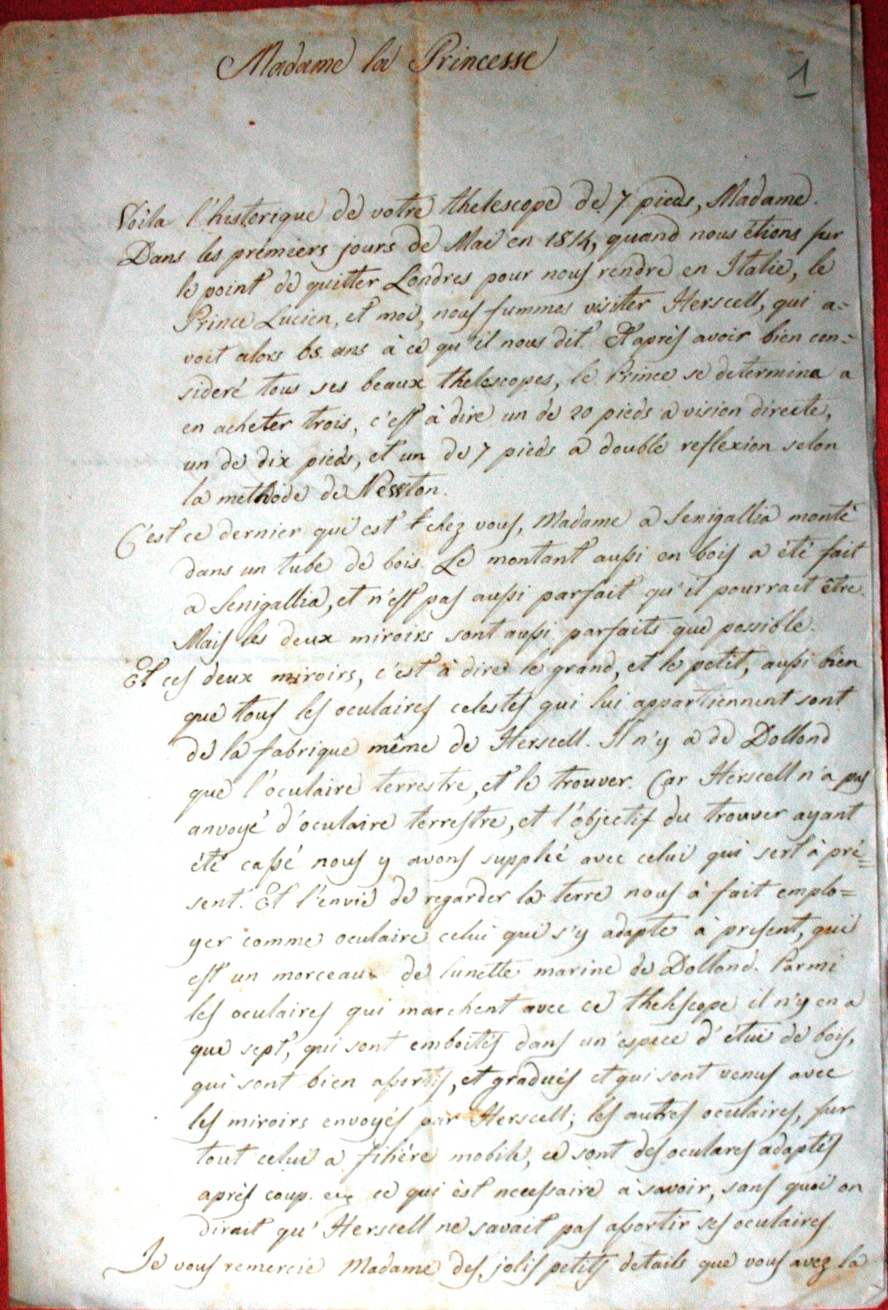 Madame la Princesse
1
Voila l'historique de votre thelescope de 7 pieds, Madame.
Dans les premiers jours de Mai en 1814, quand nous étions sur
le point de quitter Londres pour nous rendre en Italie, le
Prince Lucien, et moi, nous fummes visiter Herscell, qui a=
voit alors 65 ans à ce qu'il nous dit. Et après avoir bien con=
sideré tous ses beaux thelescopes, le Prince se determina a
en acheter trois, c'est à dire un de 20 pieds a vision directe,
un de dix pieds, et un de 7 pieds a double reflexion selon
la methode de Newton.
C'est ce dernier que est chez vous, Madame a Senigallia monté
dans un tube de bois. Le montant aussi en bois a été fait
a Senigallia, et n'est pas aussi parfait qu'il pourrait être.
Mais les deux miroirs sont aussi parfaits que possible.
Et ces deux miroirs, c'est à dire le grand, et le petit, aussi bien
que tous les oculaires celestes qui lui appartiennent sont
de la fabrique même de Herscell. Il n'y a de Dollond
que l'oculaire terrestre, et le trouver. Car Herscell n'a pas
anvoyé d'oculaire terrestre, et l'objectif du trouver ayant
été cassé nous y avons suppléé avec celui qui sert à pré=
sent. Et l'envie de regarder la terre nous à fait emplo=
yer comme oculaire celui qui s'y adapte à present, qui
est un morceaux de lunette marine de Dollond. Parmi
les oculaires qui marchent avec ce thelescope il n'y en a
que sept, qui sont emboités dans un'espece d'étui de bois,
qui sont bien assortis, et gradués et qui sont venus avec
les miroirs envoyés par Herscell; les autres oculaires, sur
tout celui a filiére mobile, ce sont des oculares adaptés
après coup. ce qui èst necessaire à savoir, sans quoi on
dirait qu'Herscell ne savait pas assortir ses oculaires.
Je vous remercie Madame des jolis petits details que vous avez la